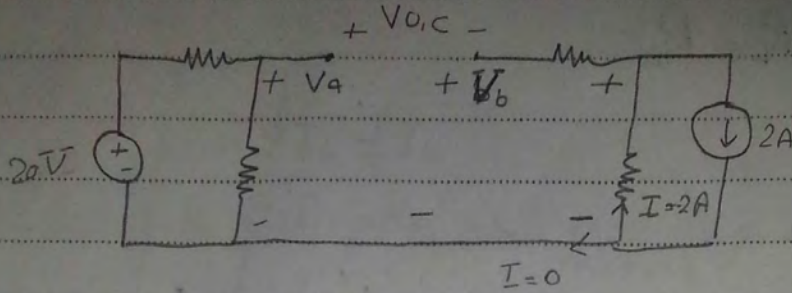 + Vo,c -
+ Va + Vb +
20V + - 2A
I=2A
- - -
I=0